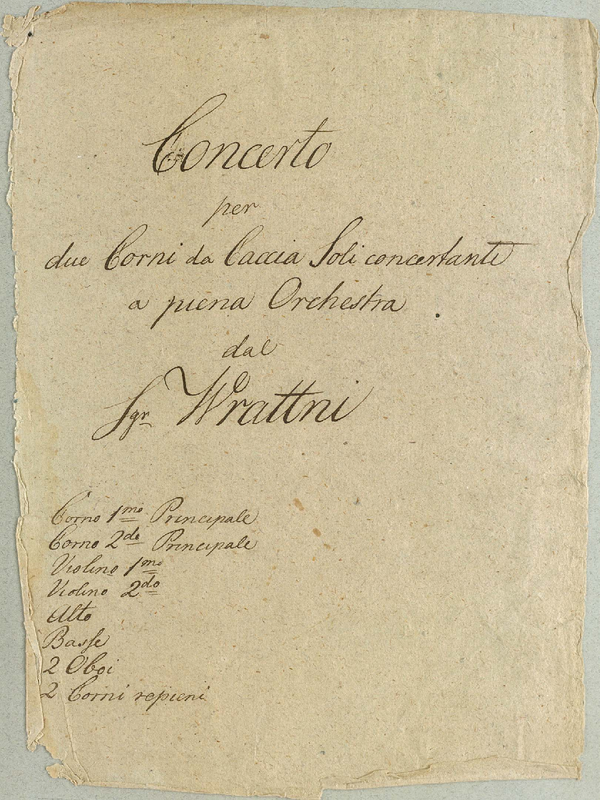 Concerto
per
due Corni da Caccia Soli concertante
a piena Orchestra
dal
Sgr. Wrattni
Corno 1mo Principale
Corno 2do Principale
Violino 1mo
Violino 2do
Alto
Basse
2 Oboi
2 Corni repieni